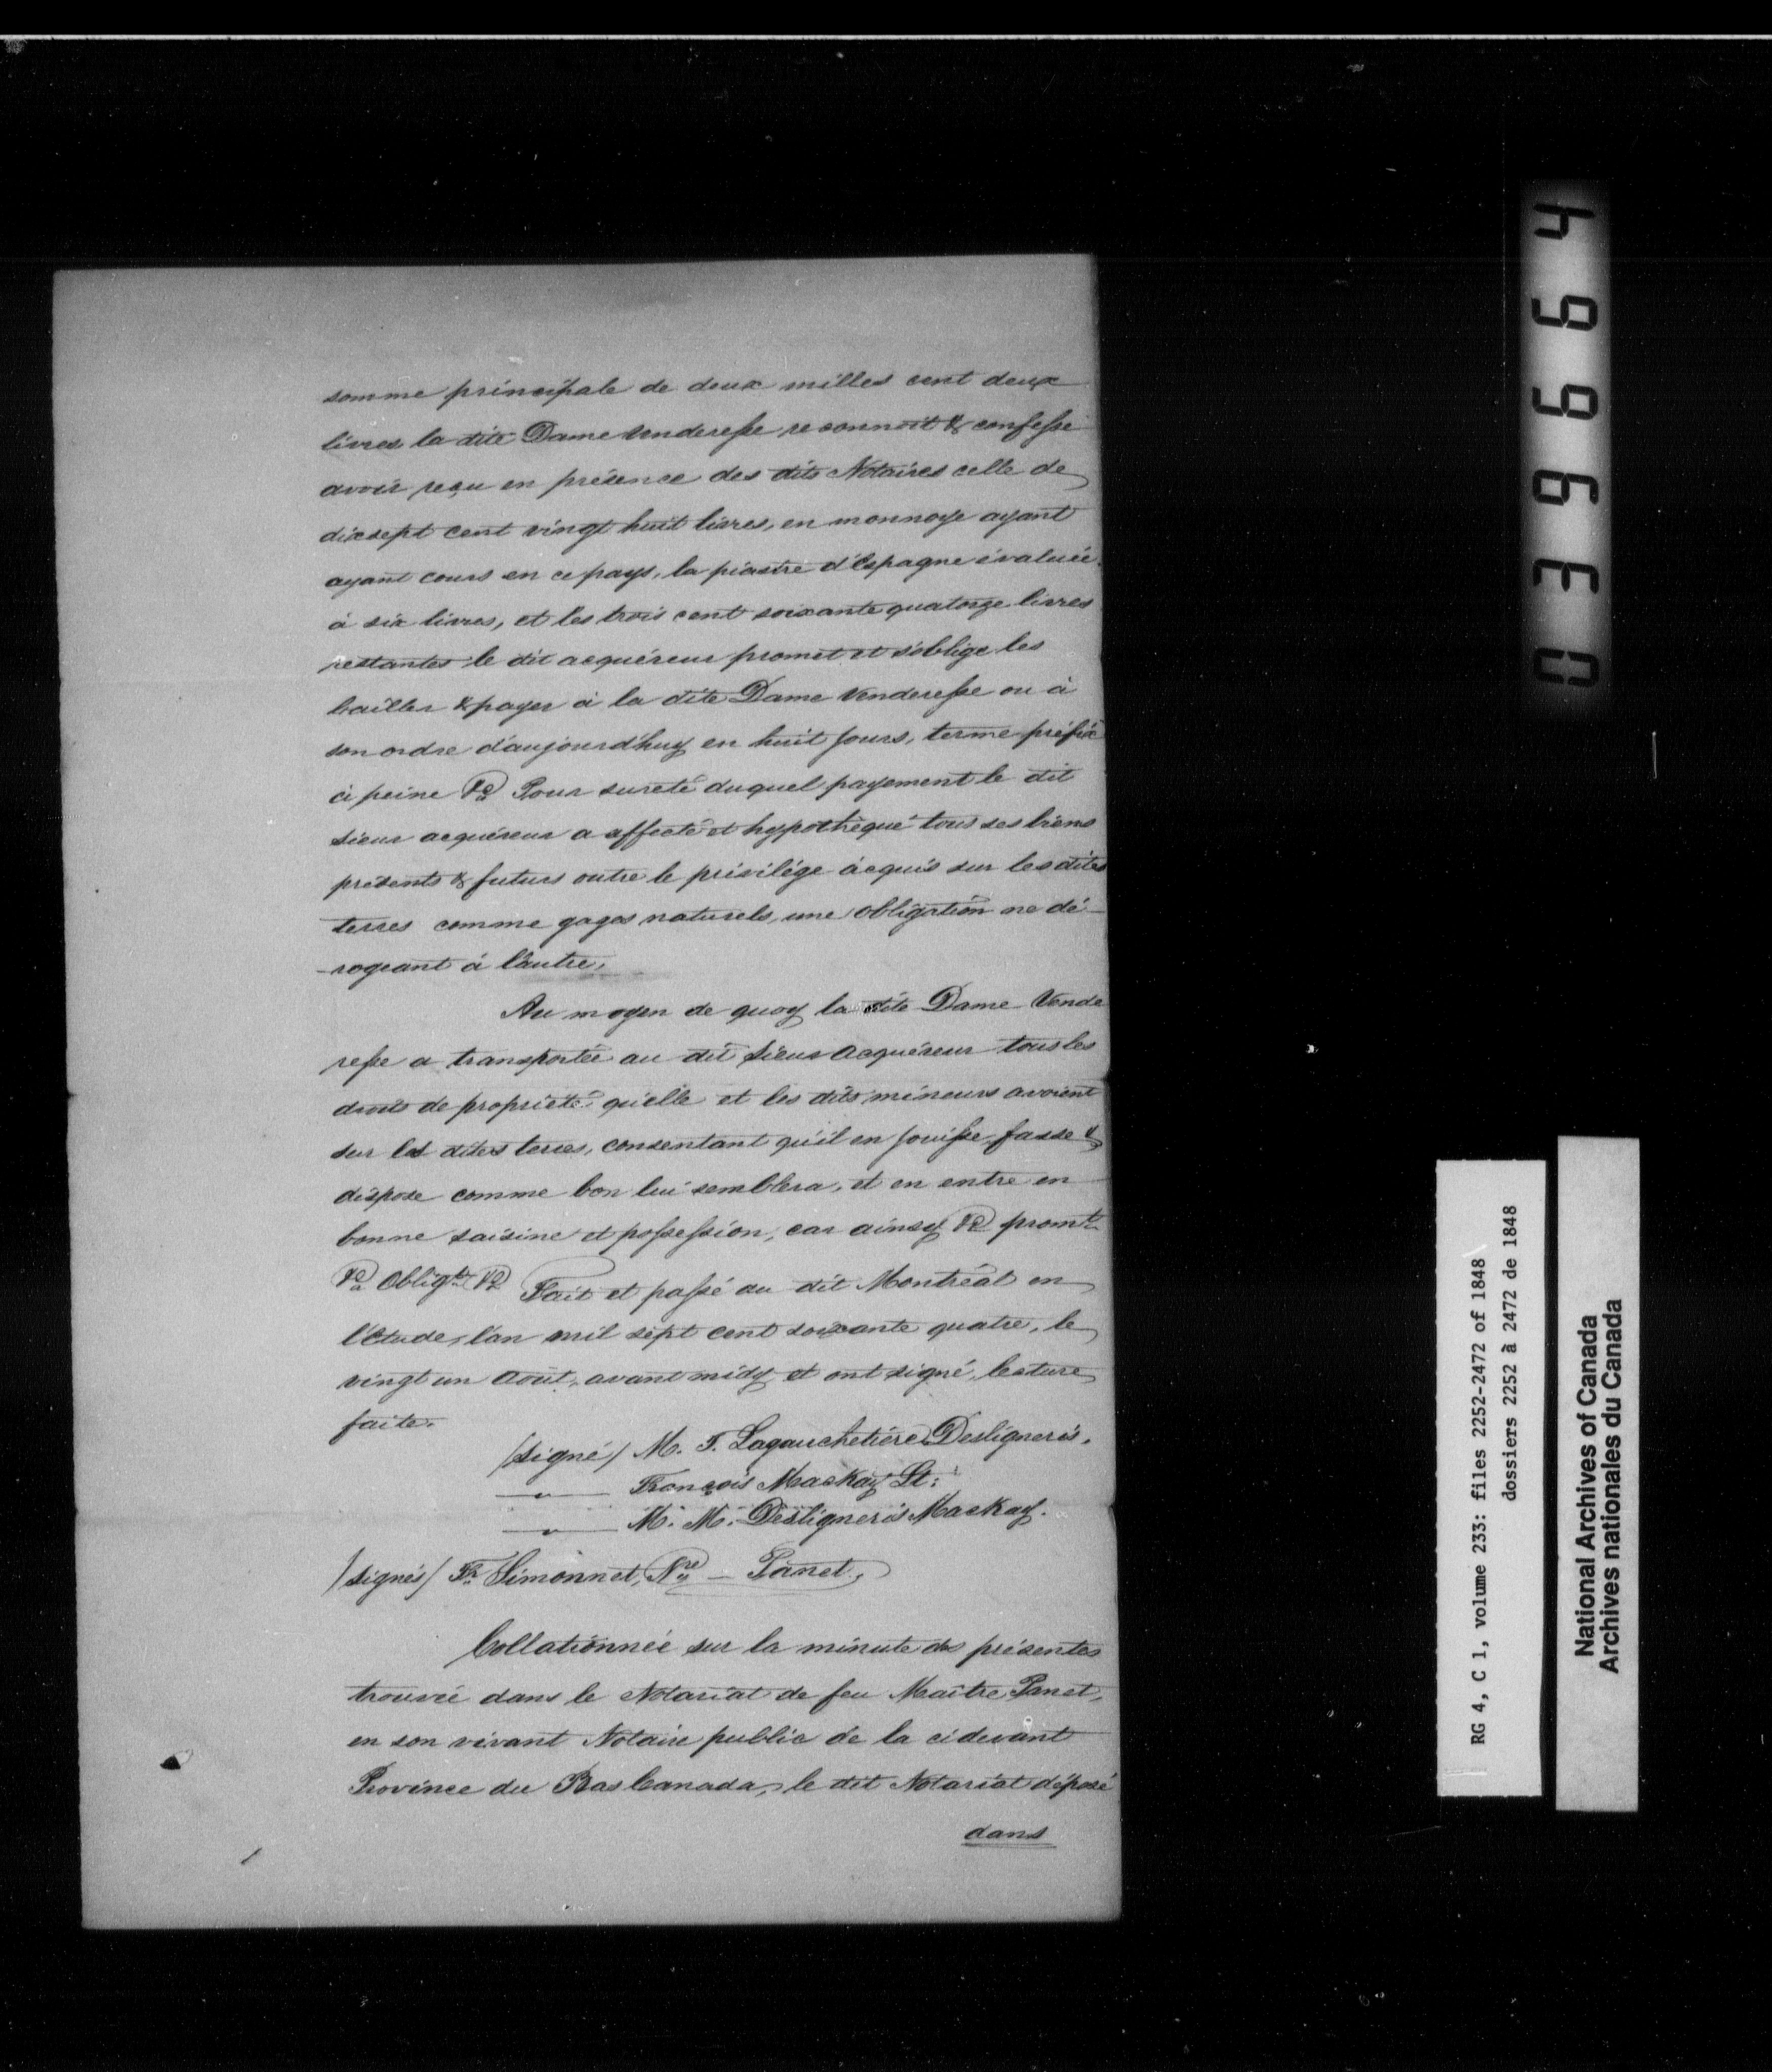 somme principale de deux milles cent deux
livres la dite Dame Venderesse reconnoit & confesse
avoir reçu en présence des dits Notaires celle de
dixsept cent vingt huit livres, en monnoye ayant
ayant cours en ce pays, la piastre d'Espagne évaluée
à six livres, et les trois cent soixante quatorze livres
restantes le dit acquéreur promet et s'oblige les
bailler & payer à la dite Dame Venderesse ou à
son ordre d'aujourd'huy en huit jours, terme préfix
à peine &ca Pour sureté duquel payement le dit
Sieur acquéreur a affecté et hypothèqué tous ses biens
présents & futurs outre le privilége acquis sur les dites
terres comme gages naturels, une obligation ne dé-
-rogeant à l'autre,
Au moyen de quoy la dite Dame Vende
resse a transportée au dit Sieur Acquéreur tous les
droits de proprieté qu'elle et les dits mineurs avoient
sur les dites terres, consentant qu'il en jouisse, fasse &
dispose comme bon lui semblera, et en entre en
bonne saisine et possession, car ainsy &ca promt
&ca obligt &ca Fait et passé au dit Montréal en
l'Etude, l'an mil sept cent soixante quatre, le
vingt un Août, avant midy et ont signé, lecture
faite.
/Signé/ M. T. Lagauchetière Desligneris.
—"— François Mackay Lt:
—"— M. M. Desligneris Mackay.
/Signés/ Fr. Simonnet, Nre — Panet,
Collationnée sur la minute des présentes
trouvée dans le Notariat de feu Maître Panet,
en son vivant Notaire public de la cidevant
Province du Bas Canada, le dit Notariat déposé
dans
039664
RG 4, C 1, volume 233: files 2252-2472 of 1848
dossiers 2252 à 2472 de 1848
National Archives of Canada
Archives nationales du Canada